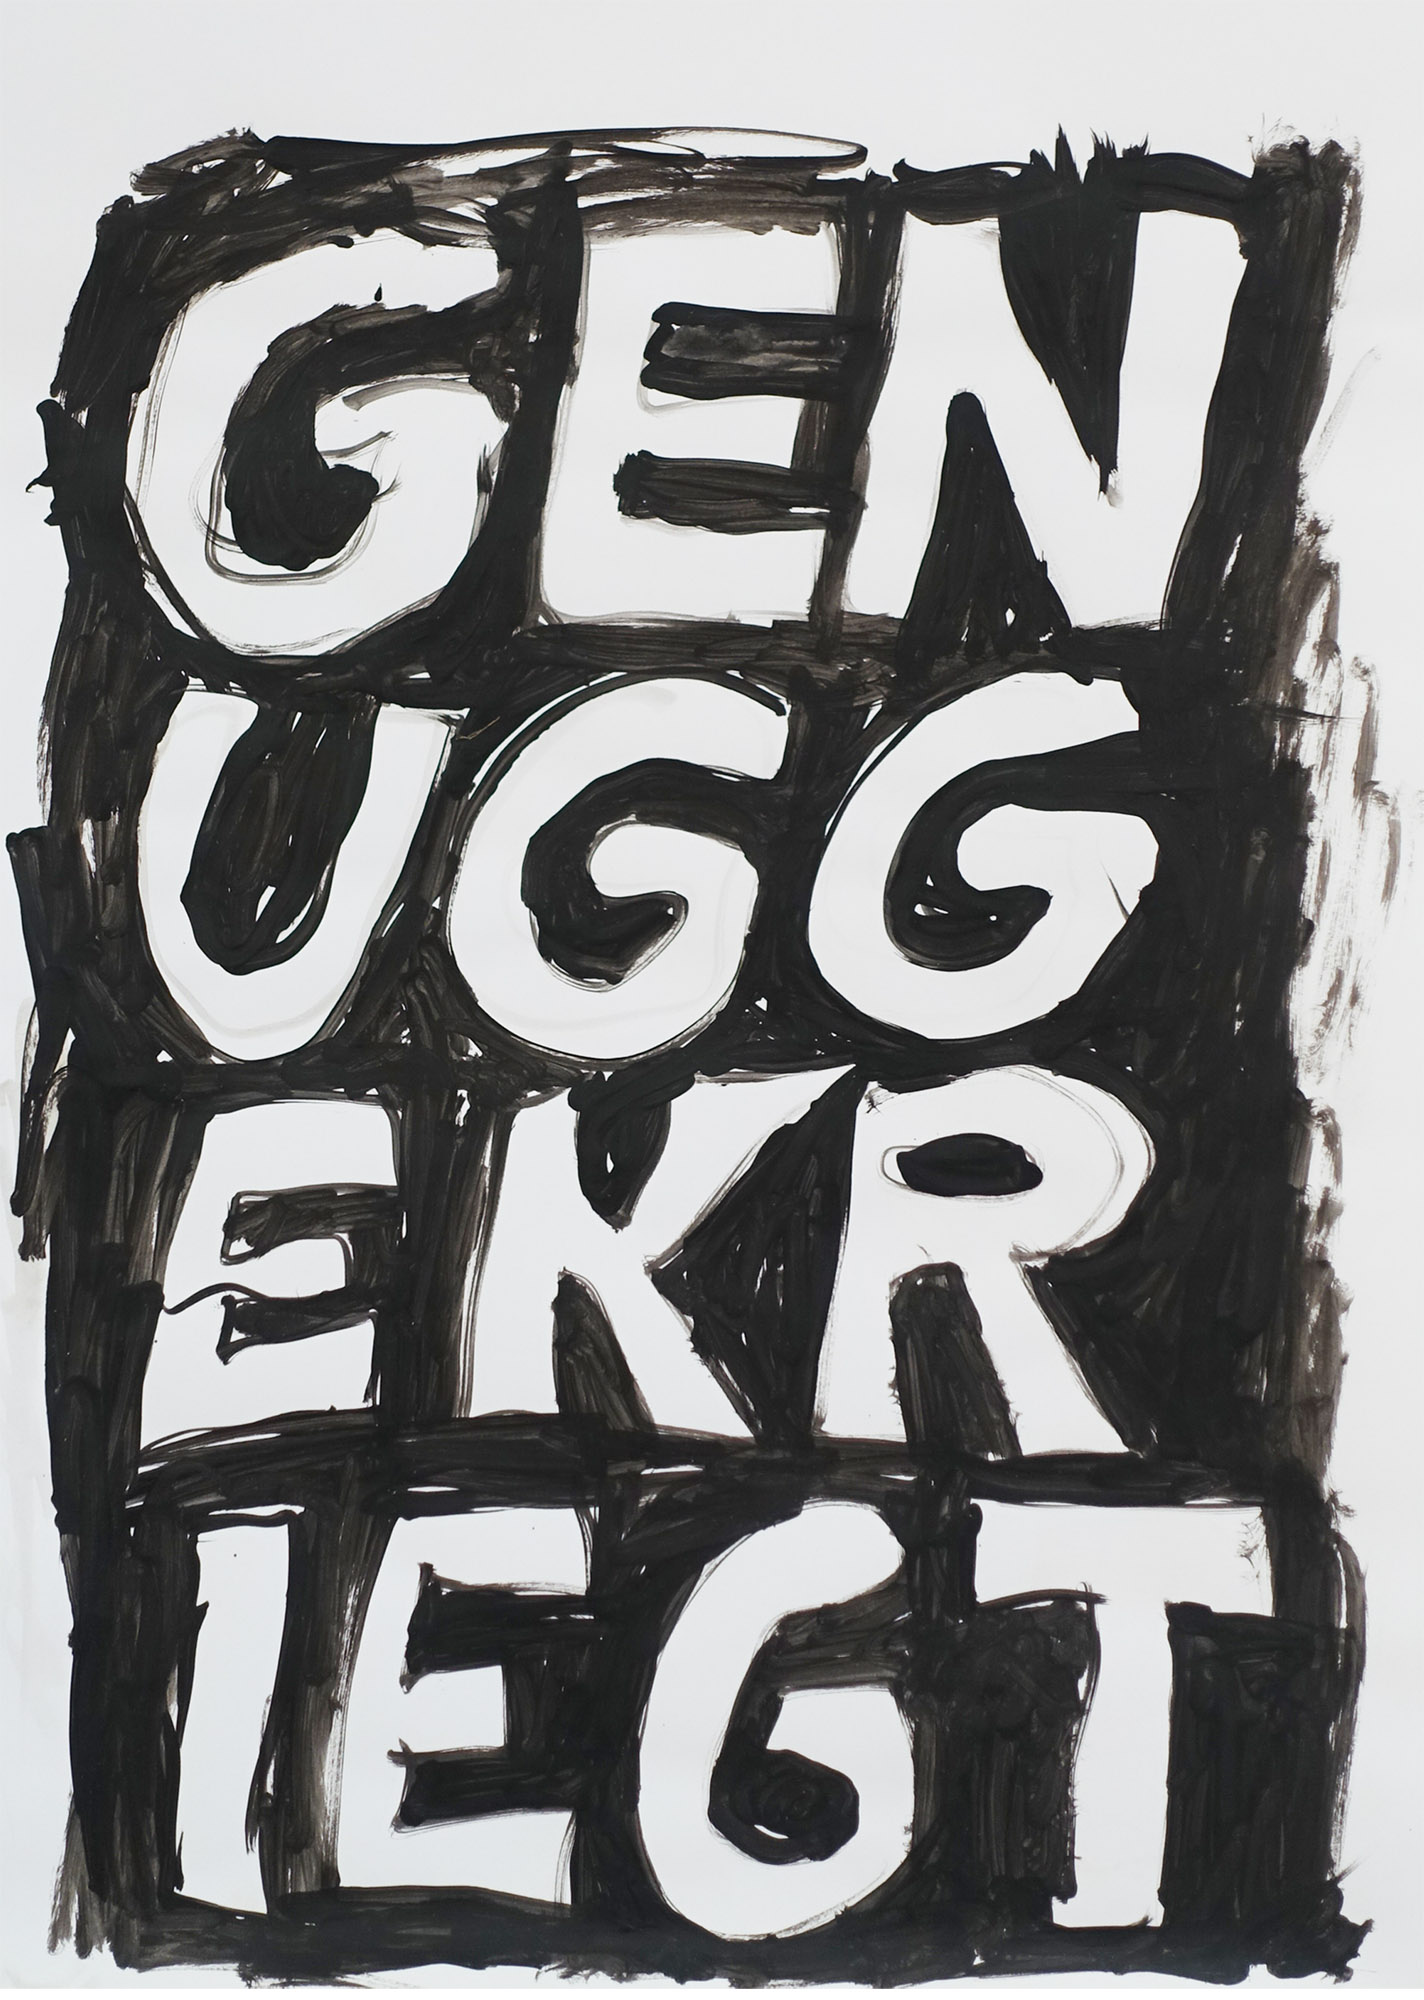 GEN
UGG
EKR
IEGT